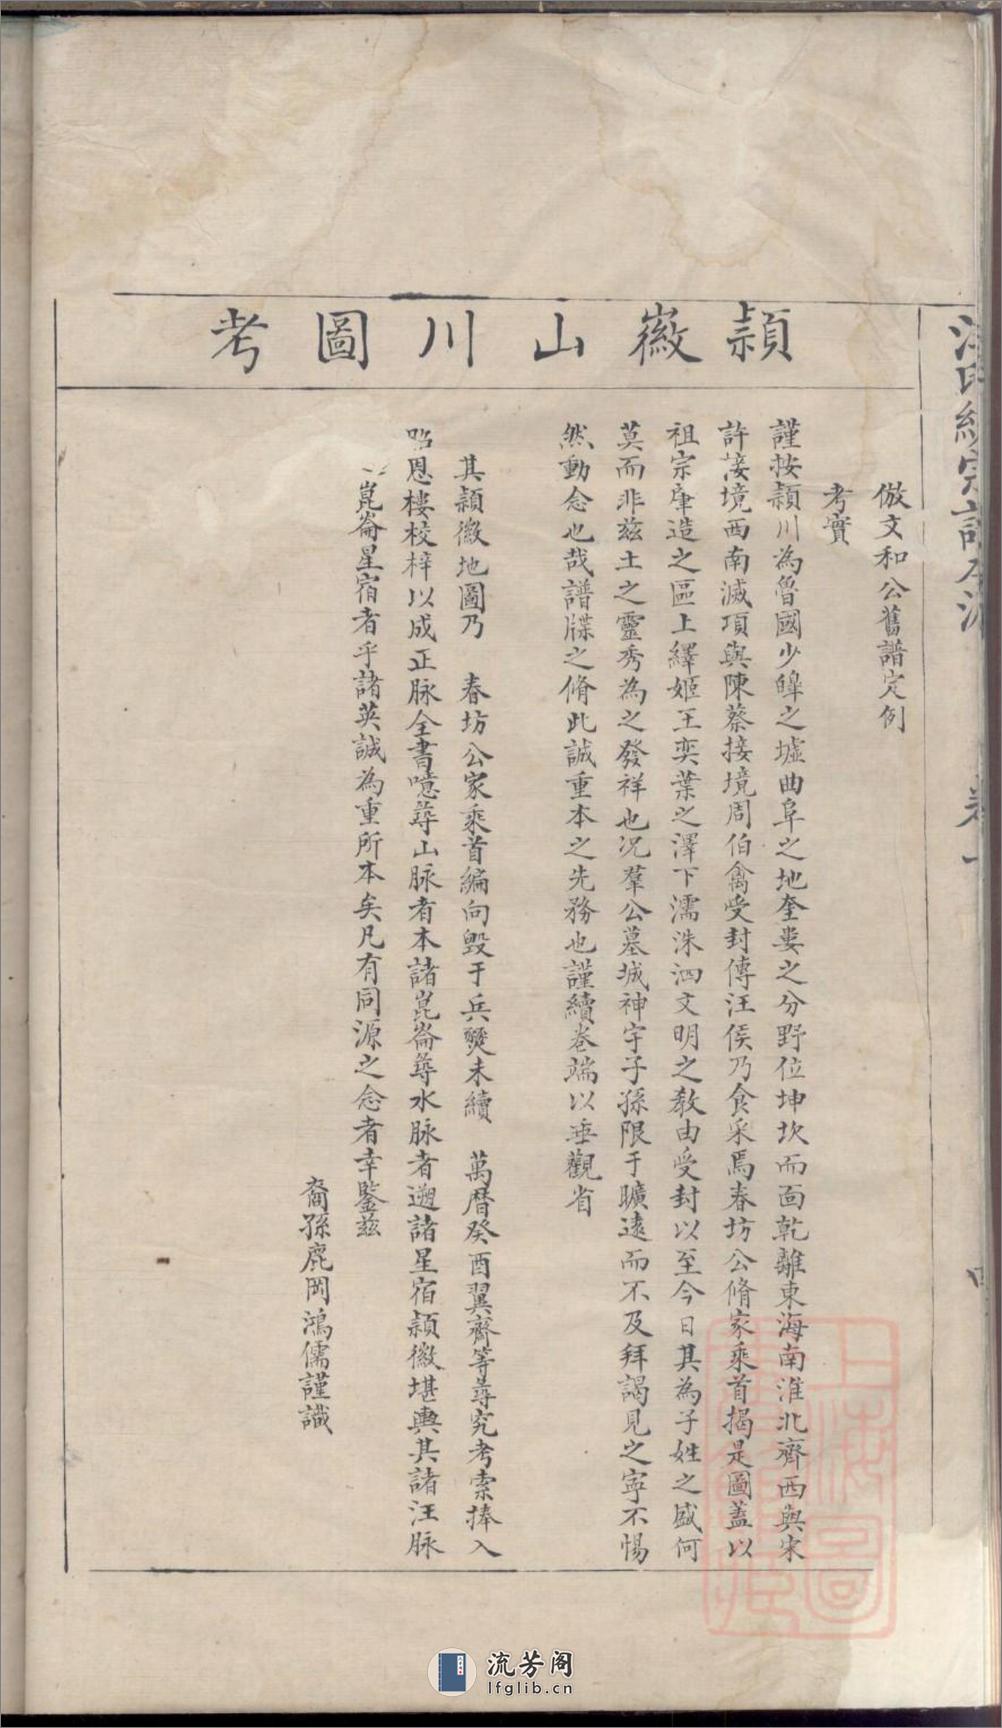 潁徽山川圖考
倣文和公舊譜定例
考實
謹按潁川為魯國少皞之墟曲阜之地奎婁之分野位坤坎而面乾離東海南淮北齊西與宋
許接境西南滅項與陳蔡接境周伯禽受封傳汪侯乃食采焉春坊公脩家乘首揭是圖蓋以
祖宗肇造之區上繹姬王奕葉之澤下濡洙泗文明之教由受封以至今日其為子姓之盛何
莫而非兹土之靈秀為之發祥也况羣公墓城神宇子孫限于曠遠而不及拜謁見之寧不惕
然動念也哉譜牒之脩此誠重本之先務也謹續卷端以垂觀省
其潁徽地圖乃 春坊公家乘首編向毁于兵燹未續 萬曆癸酉翼齊等尋究考索捧入
恩樓校梓以成正脉全書噫尋山脉者本諸崑崙尋水脉者遡諸星宿潁徽堪輿其諸汪脉
崑崙星宿者乎諸英誠為重所本矣凡有同源之念者幸鑒兹
裔孫鹿岡鴻儒謹識
卷一
上海圖書館藏
流芳阁
lfglib.cn